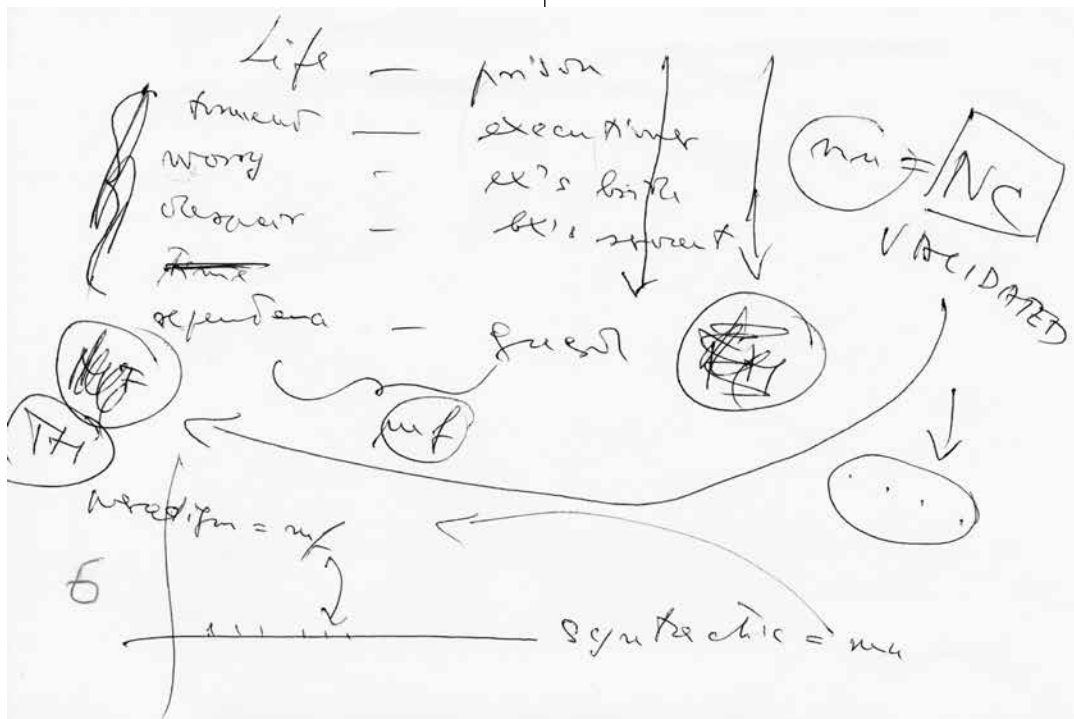 Life — prison
torment — executioner
worry - ex's bride
despair — ex's servant
time
dependence — guest
mu = NC
VALIDATED
mf
TH
paradigm = mf
6
syntactic = mu